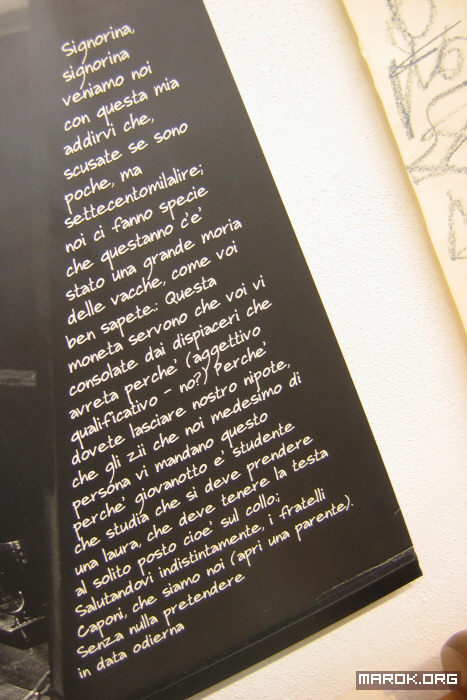 Signorina,
signorina
veniamo noi
con questa mia
addirvi che,
scusate se sono
poche, ma
settecentomilalire;
noi ci fanno specie
che questanno c'e'
stato una grande moria
delle vacche, come voi
ben sapete.: Questa
moneta servono che voi vi
consolate dai dispiaceri che
avreta perche' (aggettivo
qualificativo - no?) Perche'
dovete lasciare nostro nipote,
che gli zii che noi medesimo di
persona vi mandano questo
perche' giovanotto e' studente
che studia che si deve prendere
una laura, che deve tenere la testa
al solito posto cioe' sul collo;
Salutandovi indistintamente, i fratelli
Caponi, che siamo noi (apri una parente).
Senza nulla pretendere
in data odierna
MAROK.ORG